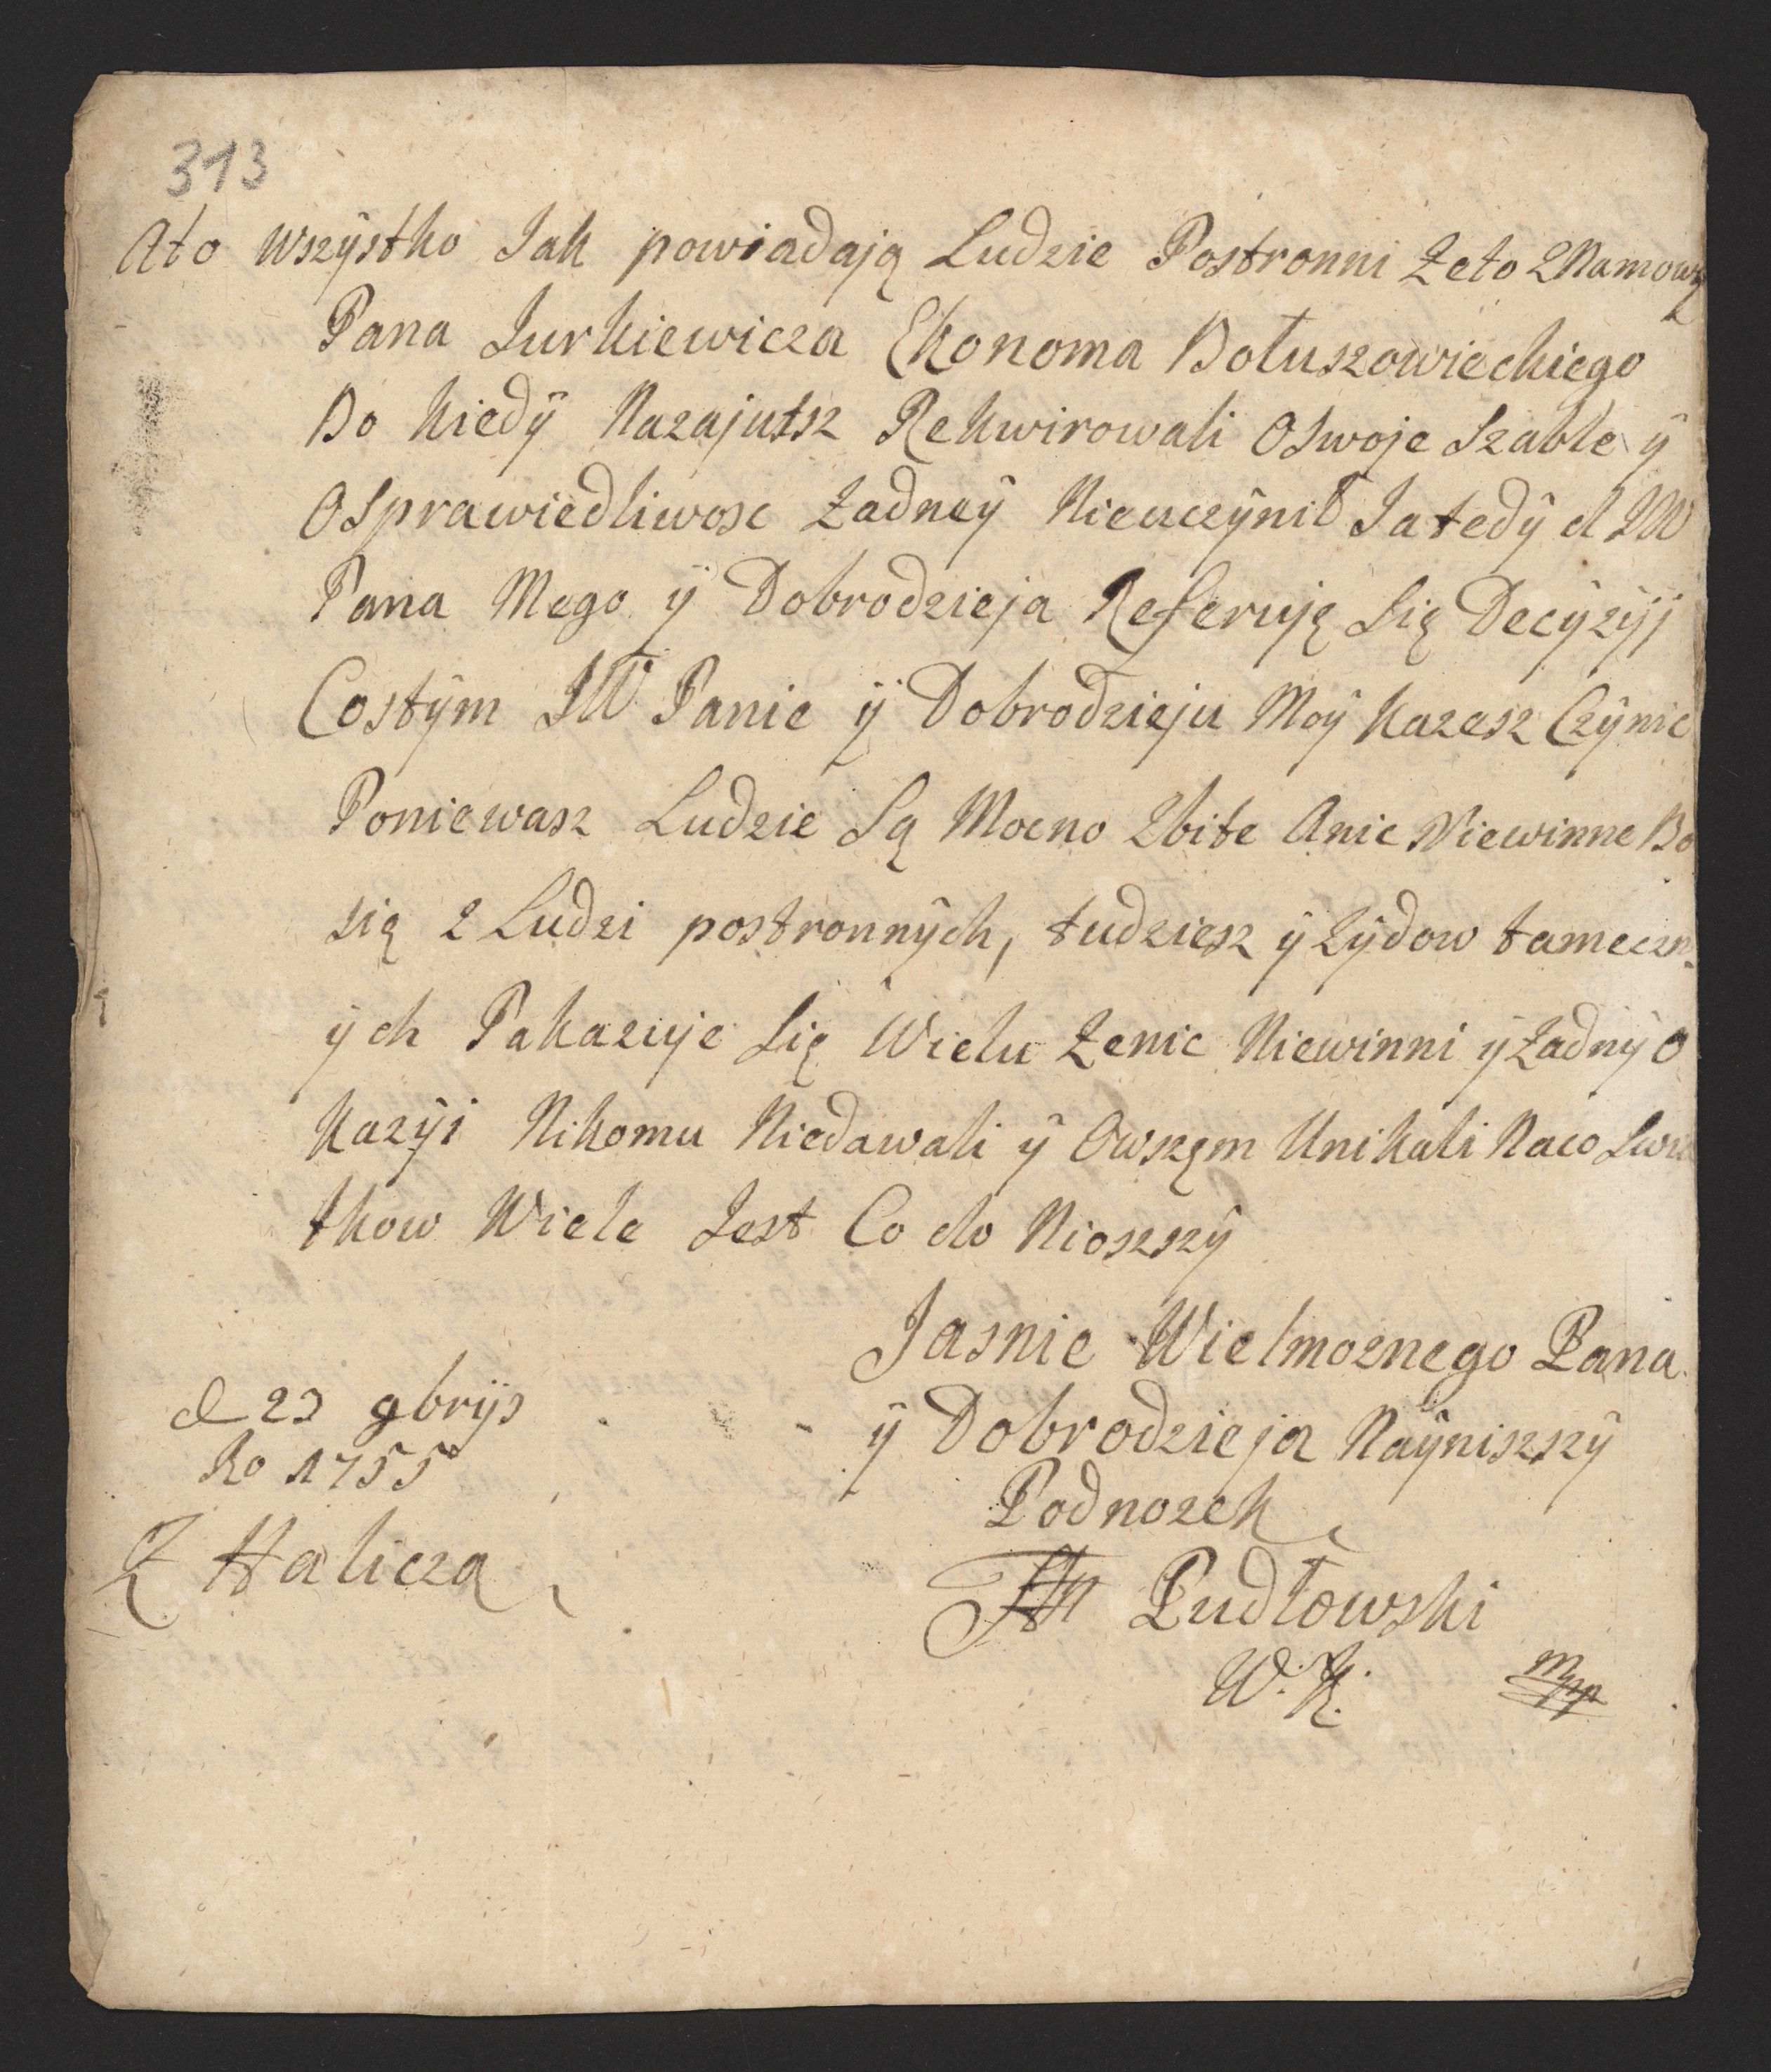 313
Ato wszÿstko Jak powiadają Ludzie Postronni Żeto zNamową
Pana Jurkiewicza Ekonoma Bołuszowieckiego
Bo kiedÿ Nazajutsz Rekwirowali OSwoje Szable ÿ
OSprawiedliwosc Żadneÿ NieuczÿniŁ Ja tedÿ d JW
Pana Mego ÿ Dobrodzieja Referuję Się Decÿzÿj
Costÿm JW Panie ÿ Dobrodzieju Moÿ Kazesz Czÿnic
Poniewasz Ludzie Są Mocno Zbite Anic Niewinne Bo
się z Ludzi postronnÿch, tudziesz ÿ Zÿdow tameczn
ÿch Pakazuje Się Wielu Żenic Niewinni ÿ ŻadnÿO
Kazÿi Nikomu Niedawali ÿ Owszęm Unikali Naco Swia
tkow Wiele Jest Co do Nioszszÿ
Jasnie Wielmoznego Pana
ÿ Dobrodzieja Naÿniszszÿ
Podnozek
d 23 gbrÿs
Ro 1755
Z Halicza
Pudłowski
W. K. Mpp